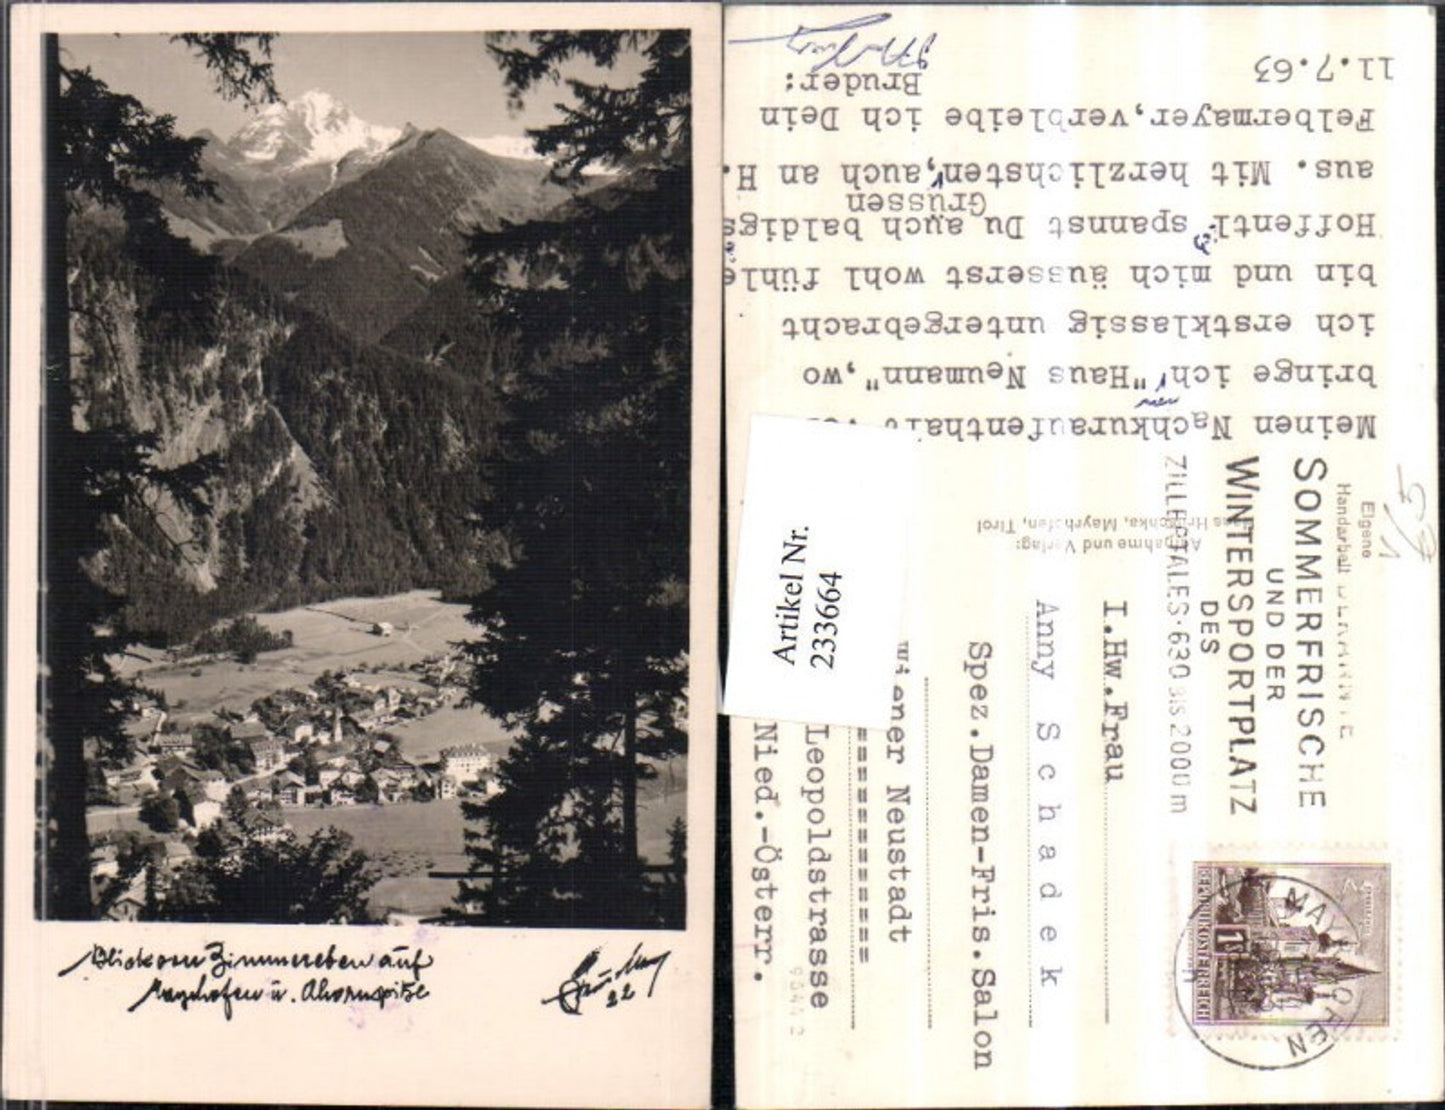 Blick von Zimmereben auf
Mayrhofen u. Ahornspitze
22
11.7.63
Meinen Nachkuraufenthalt
bringe ich "Haus Neumann", wo
ich erstklassig untergebracht
bin und mich äusserst wohl fühle
Hoffentl. spannst Du auch baldigs
Grüssen
aus. Mit herzlichsten, auch an H.
Felbermayer, verbleibe ich Dein
Bruder:
Aufnahme und Verlag:
Hruschka, Mayrhofen, Tirol
Eigene
Handarbeit
SOMMERFRISCHE
UND DER
WINTERSPORTPLATZ
DES
ZILLERTALES·630 BIS 2000 m
MAYRHOFEN
1S
REPUBLIK ÖSTERREICH
I.Hw.Frau
Anny Schadek
Spez.Damen-Fris.Salon
Wiener Neustadt
==============
Leopoldstrasse
Nied.-Österr.
Artikel Nr.
233664